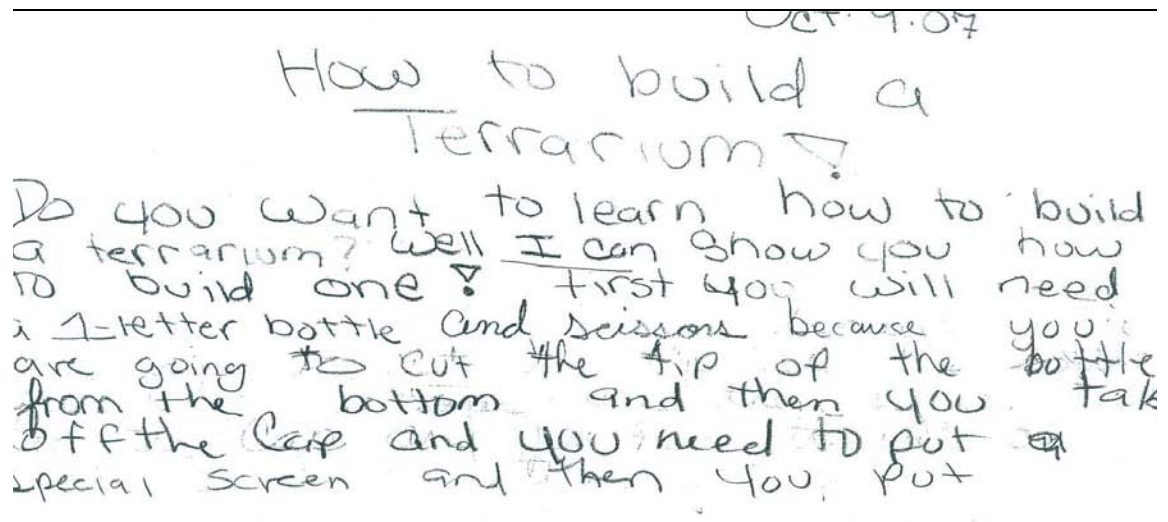 Oct. 9.07
How to build a
Terrarium!
Do you want to learn how to build
a terrarium? Well I can show you how
to build one! first you will need
a 1-retter bottle and scissors because you
are going to cut the tip of the bottle
from the bottom and then you tak
off the Cap and you need to put a
special screen and then you put